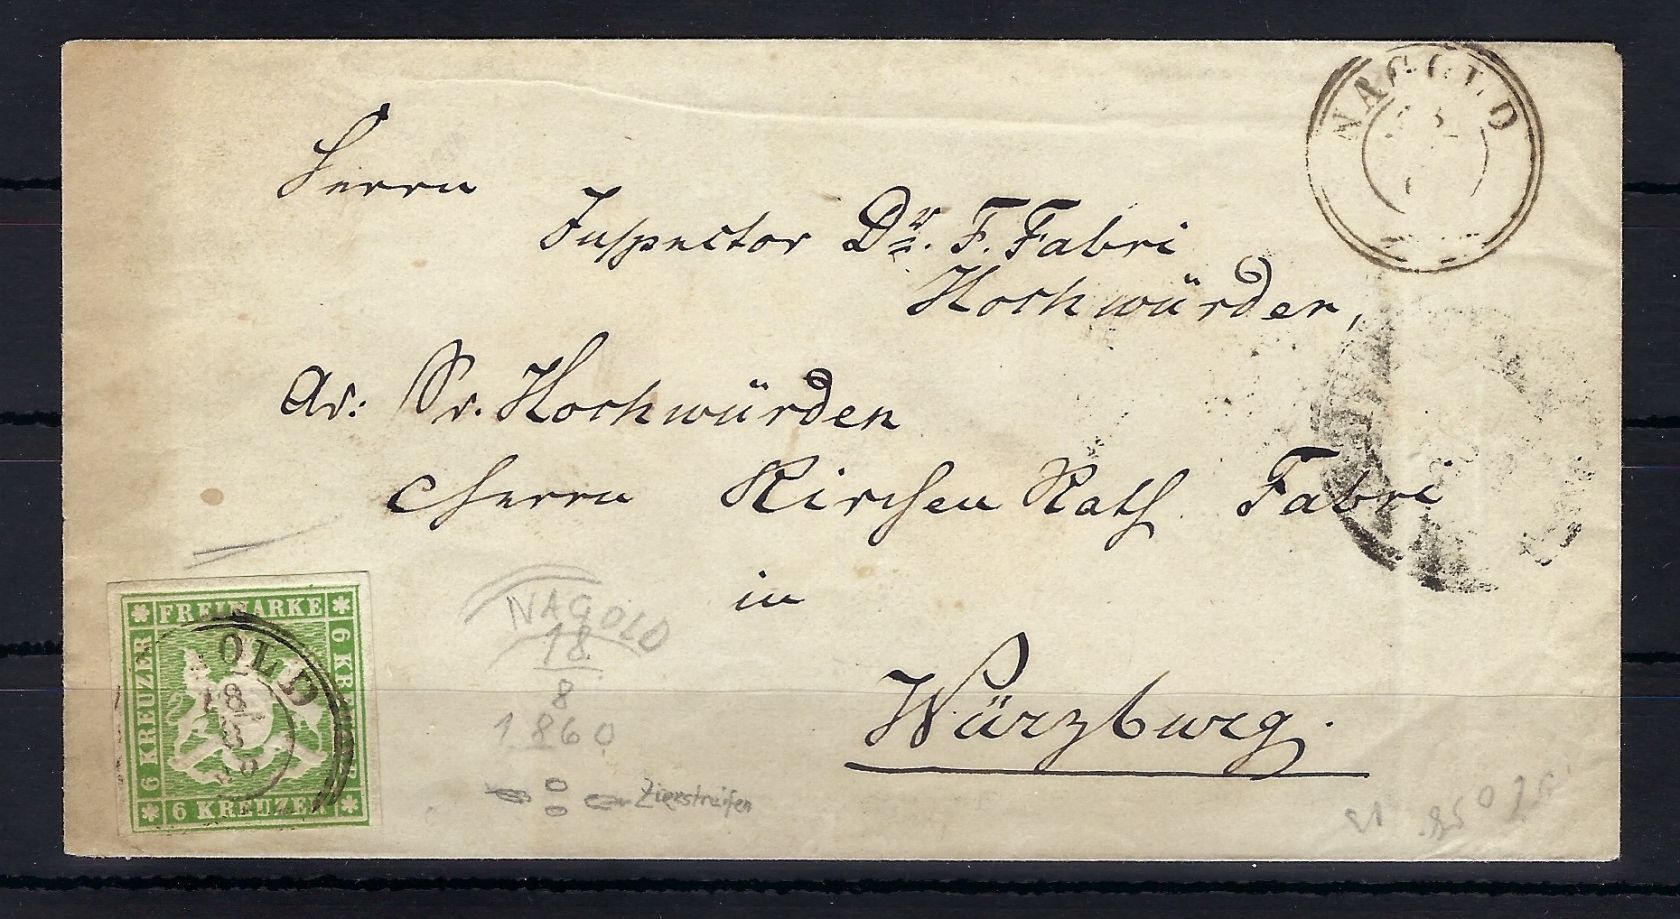 NAGOLD
Herrn
Inspector Dr. F. Fabri
Hochwürden,
Ad: Sr. Hochwürden
Herrn Kirchen Rath Fabri
in
Würzburg.
FREIMARKE
6 KREUZER
6 KREUZER
6 KREUZER
OLD
18
8
NAGOLD
18
8
1860
Zierstreifen